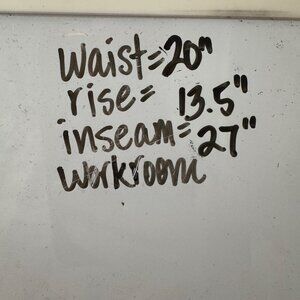 waist=20"
rise= 13.5"
inseam=27"
workroom